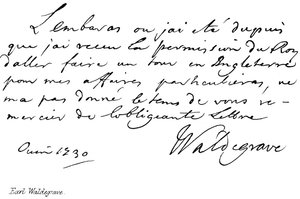 L'embaras ou j'ai eté depuis
que j'ai receu la permission du Roy
d'aller faire un tour en Engleterre
pour mes affaires particulieres, ne
m'a pas donné le tems de vous re-
mercier de lobligeante Lettre
1730 Waldegrave
Earl Waldegrave.